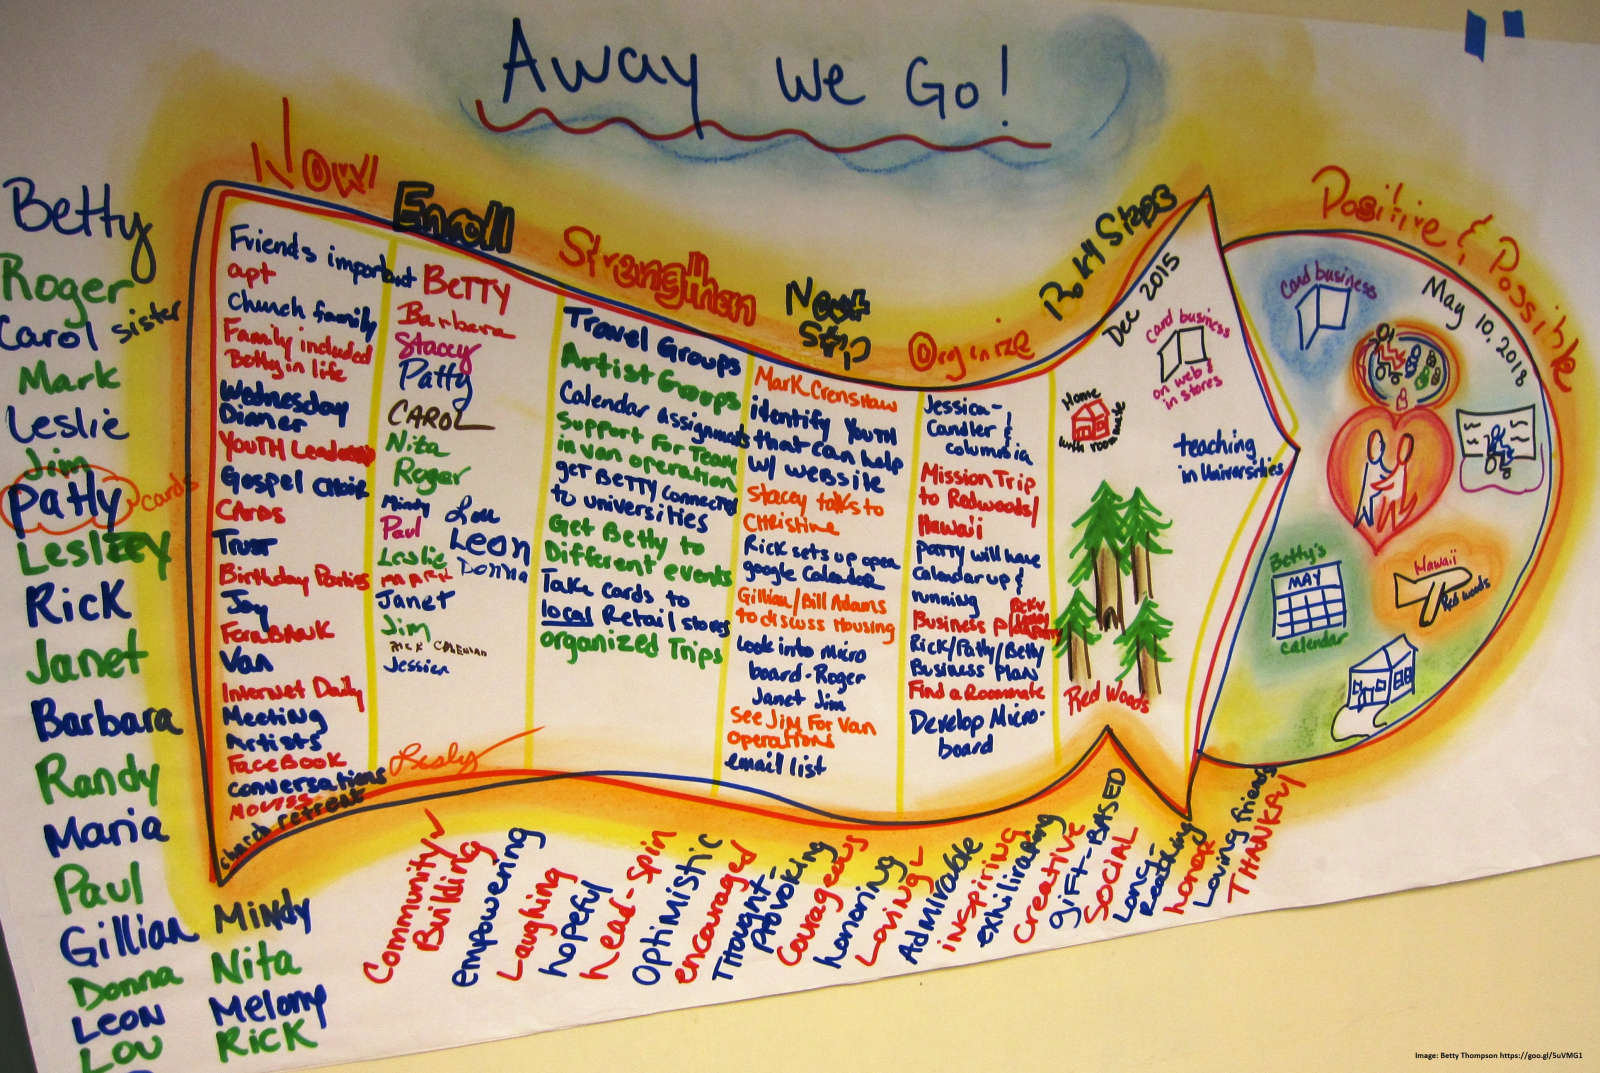 Away We Go!
Betty
Roger
Carol sister
Mark
Leslie
Jim
Patty cards
Rick
Janet
Barbara
Randy
Maria
Paul
Gillian
Donna
Leon
Lou
Mindy
Nita
Melony
Rick
Now
Friends important
apt
Church family
Family included
Betty in life
Wednesday
Dinner
Youth Leadership
Gospel Choir
Cards
Trust
Birthday Parties
Joy
Van
Internet Daily
Meeting
Artists
FaceBook
conversations
church retreat
Enroll
Betty
Barbara
Stacey
Patty
CAROL
Nita
Roger
Mindy
Paul
Leslie
Mark
Janet
Jim
Jessica
Lou
Leon
Donna
Lesly
Travel Groups
Artist Groups
Calendar assignments
Support for Team
in van operation
get Betty connected
to universities
Get Betty to
Different events
Take cards to
local Retail stores
organized Trips
Next
Step
Mark Crenshaw
identify Youth
that can help
w/ website
Stacey talks to
Christine
Rick sets up open
google Calendar
Gillian/Bill Adams
to discuss Housing
Look into micro
board - Roger
Janet Jim
See Jim For Van
operations
email list
Organize
Jessica -
Candler /
columbia
Mission Trip
to Redwoods/
Hawaii
Patty will have
Calendar up &
running
Business plan
Rick/Patty/Betty
Business Plan
Find a Roommate
Develop Micro-
board
Dec 2015
Card business
on web &
in stores
Home
with roommate
teaching
in Universities
Red Woods
Positive & Possible
May 10, 2018
Card business
Betty's
MAY
calendar
Hawaii
Red Woods
Community
Building
empowering
Laughing
hopeful
head-spin
Optimistic
encouraged
Thought-
Provoking
Courageous
honoring
Loving
Admirable
inspiring
exhilirating
Creative
Gift-BASED
SOCIAL
Long-
Reaching
Loving friends
THANKFUL
Image: Betty Thompson https://goo.gl/5uVMG1